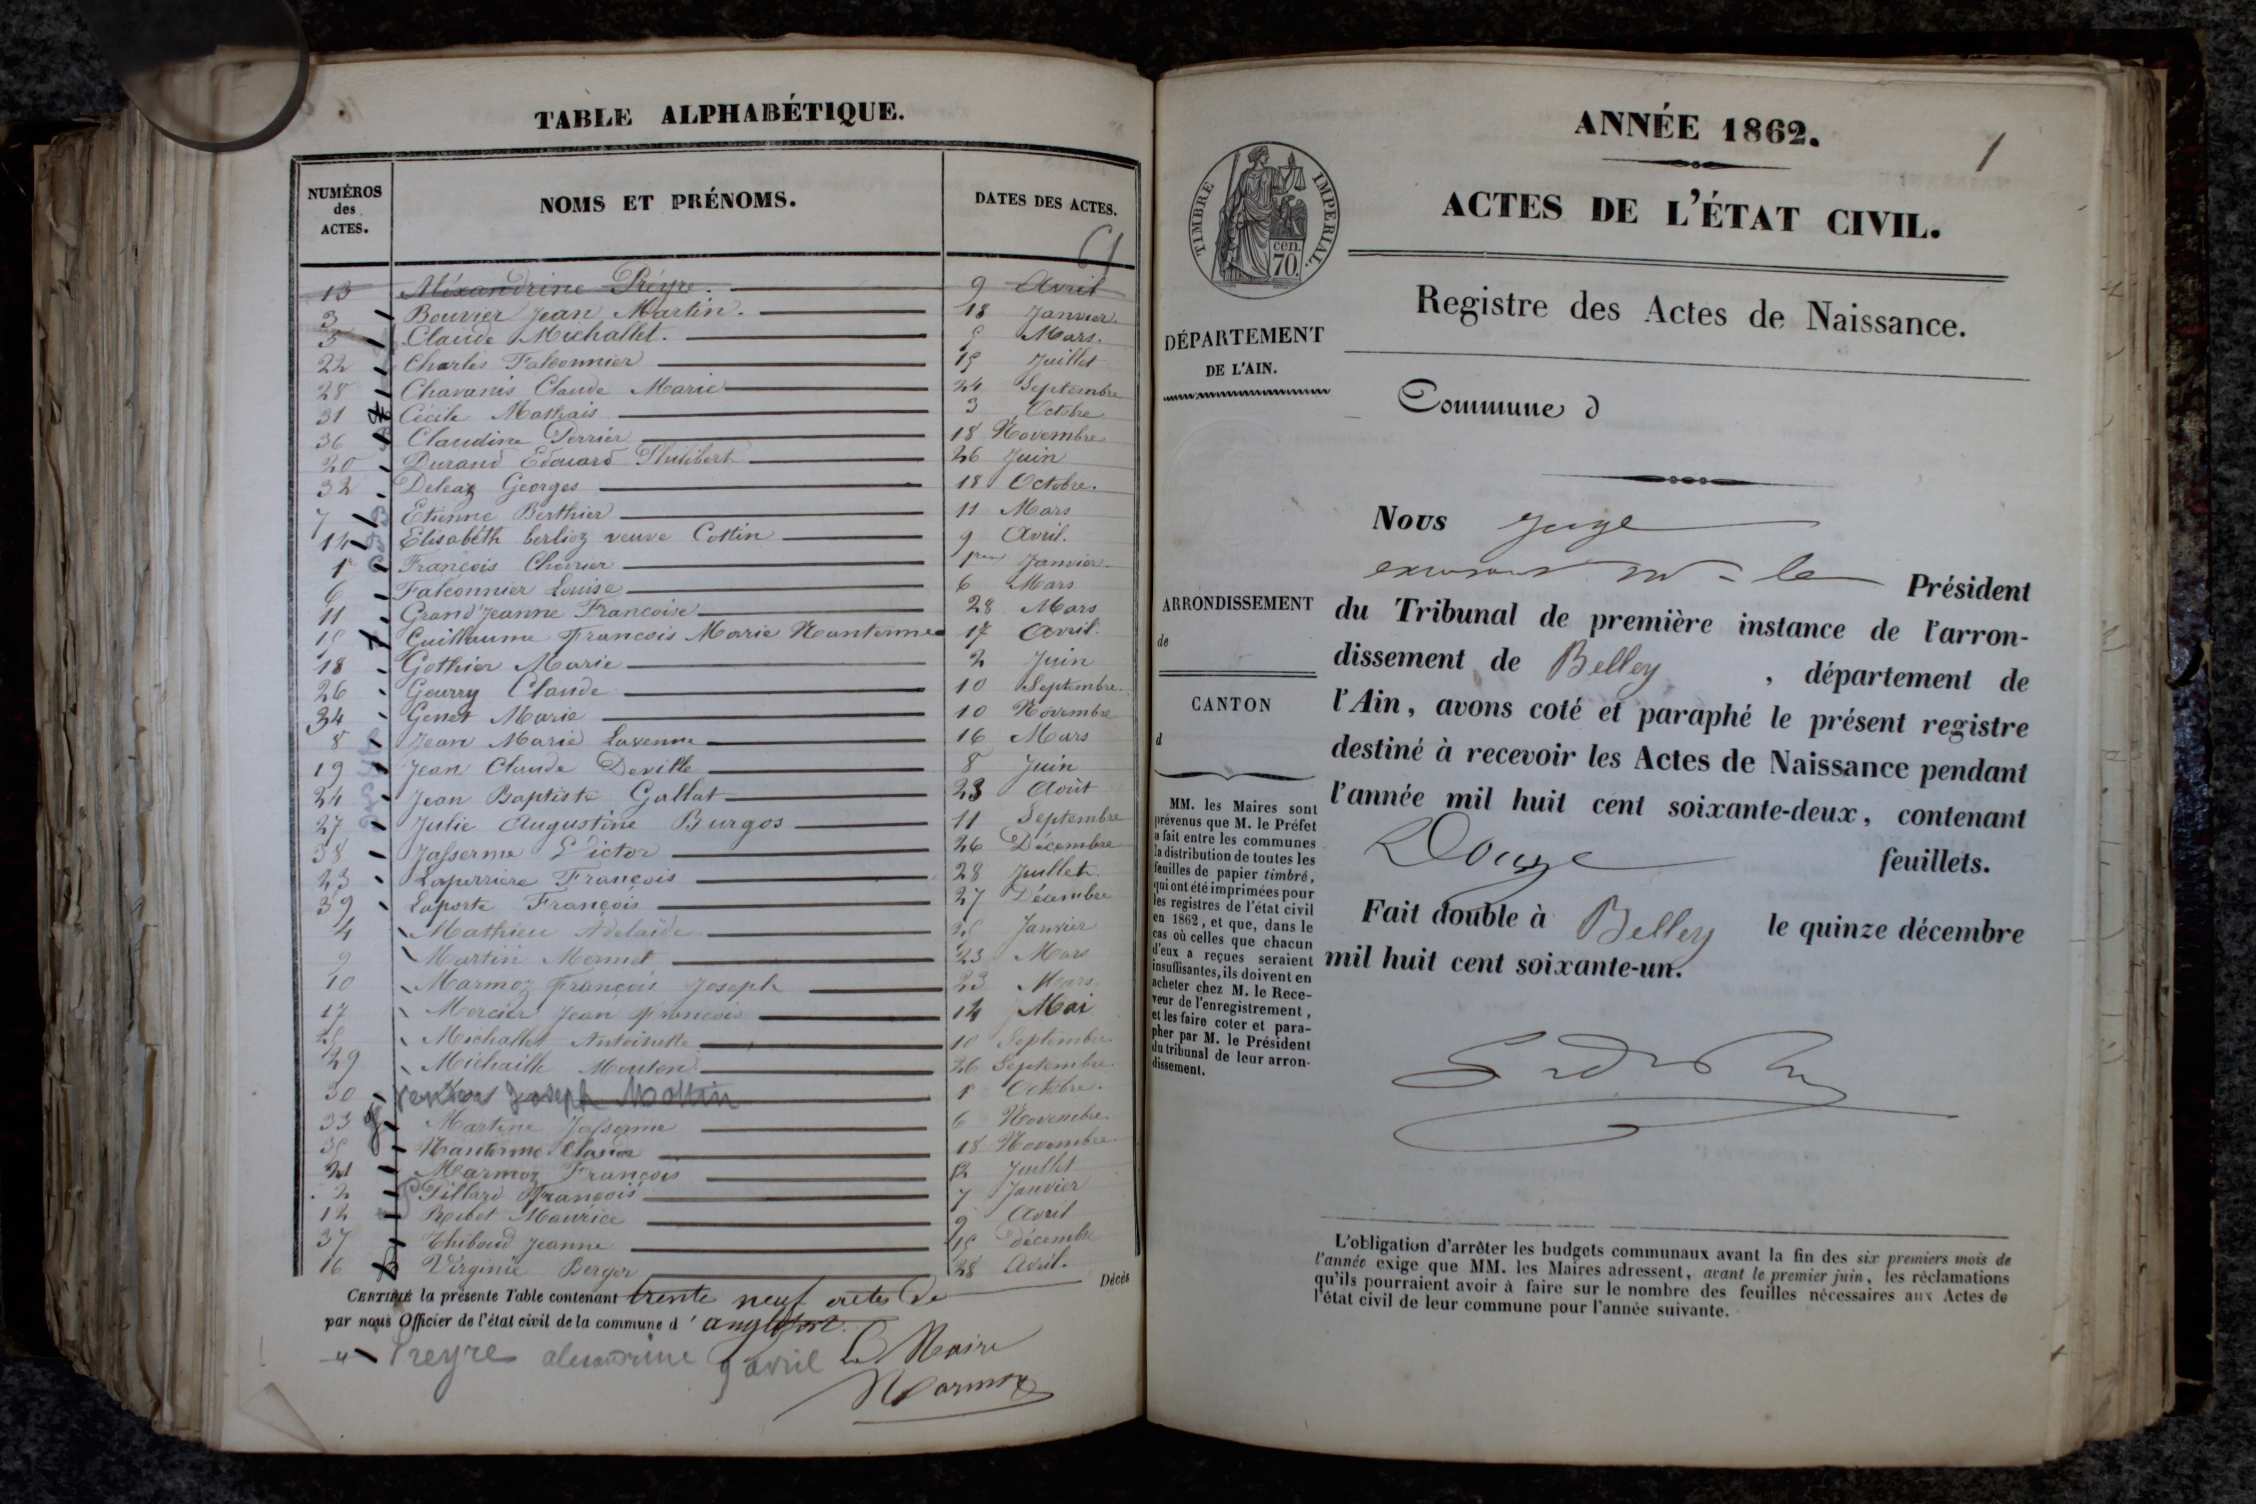 TABLE ALPHABÉTIQUE.
NUMÉROS des ACTES.
NOMS ET PRÉNOMS.
DATES DES ACTES.
13 Aléxandrine Préyre. 9 Avril
3 Bouvier Jean Martin. 18 Janvier.
5 Claude Michallet. 5 Mars.
22 Charles Falconnier 15 Juillet
28 Chavanis Claude Marie 24 Septembre
31 Cécile Mathais 3 Octobre
36 Claudine Perrier 18 Novembre
20 Durand Edouard Philibert 26 Juin
32 Deleaz Georges 18 Octobre.
7 Etienne Berthier 11 Mars
14 Elisabéth berlioz veuve Cottin 9 Avril.
1 François Chevrier Janvier
6 Falconnier Louise 6 Mars
11 Grand Jeanne Françoise 28 Mars
15 Guillaume François Marie Nantermes 17 Avril.
18 Gothier Marie 2 Juin
26 Gourry Claude 10 Septembre.
34 Genet Marie 10 Novembre
8 Jean Marie Lavenne 16 Mars
19 Jean Claude Deville 8 Juin
24 Jean Baptiste Gallat 23 Août
27 Julie Augustine Burgos 11 Septembre
38 Jasserme Victor 26 Décembre
23 Laperriere François 28 Juillet.
39 Laporte François 27 Décembre
4 Mathieu Adelaïde Janvier
9 Martin Mermet 23 Mars
10 Marmoz François Joseph 23 Mars.
17 Mercier Jean François 14 Mai
25 Michallet Antoinette 10 Septembre
29 Michaille Mouton 26 Septembre
30 Joseph Mottin 1 Octobre.
33 Martine Jasserme 6 Novembre.
35 Nanterme Claude 18 Novembre
21 Marmoz François 12 Juillet
2 Pillard François 7 Janvier
12 Revet Maurice 9 Avril
37 Thibaud Jeanne 15 décembre
16 Virginie Berger 28 Avril.
CERTIFIÉ la présente Table contenant trente neuf actes de Décès
par nous Officier de l'état civil de la commune d' anglefort.
Preyre alexandrine 9 avril Le Maire
Marmoz
ANNÉE 1862.
1
ACTES DE L'ÉTAT CIVIL.
TIMBRE IMPERIAL.
cen. 70.
Registre des Actes de Naissance.
DÉPARTEMENT
DE L'AIN.
Commune d
Nous juge
Président
du Tribunal de première instance de l'arron-
dissement de Belley , département de
l'Ain, avons coté et paraphé le présent registre
destiné à recevoir les Actes de Naissance pendant
l'année mil huit cent soixante-deux, contenant
Douze feuillets.
Fait double à Belley le quinze décembre
mil huit cent soixante-un.
ARRONDISSEMENT
de
CANTON
d
MM. les Maires sont
prévenus que M. le Préfet
a fait entre les communes
la distribution de toutes les
feuilles de papier timbré,
qui ont été imprimées pour
les registres de l'état civil
en 1862, et que, dans le
cas où celles que chacun
d'eux a reçues seraient
insuffisantes, ils doivent en
acheter chez M. le Rece-
veur de l'enregistrement,
et les faire coter et para-
pher par M. le Président
du tribunal de leur arron-
dissement.
L'obligation d'arrêter les budgets communaux avant la fin des six premiers mois de
l'année exige que MM. les Maires adressent, avant le premier juin, les réclamations
qu'ils pourraient avoir à faire sur le nombre des feuilles nécessaires aux Actes de
l'état civil de leur commune pour l'année suivante.